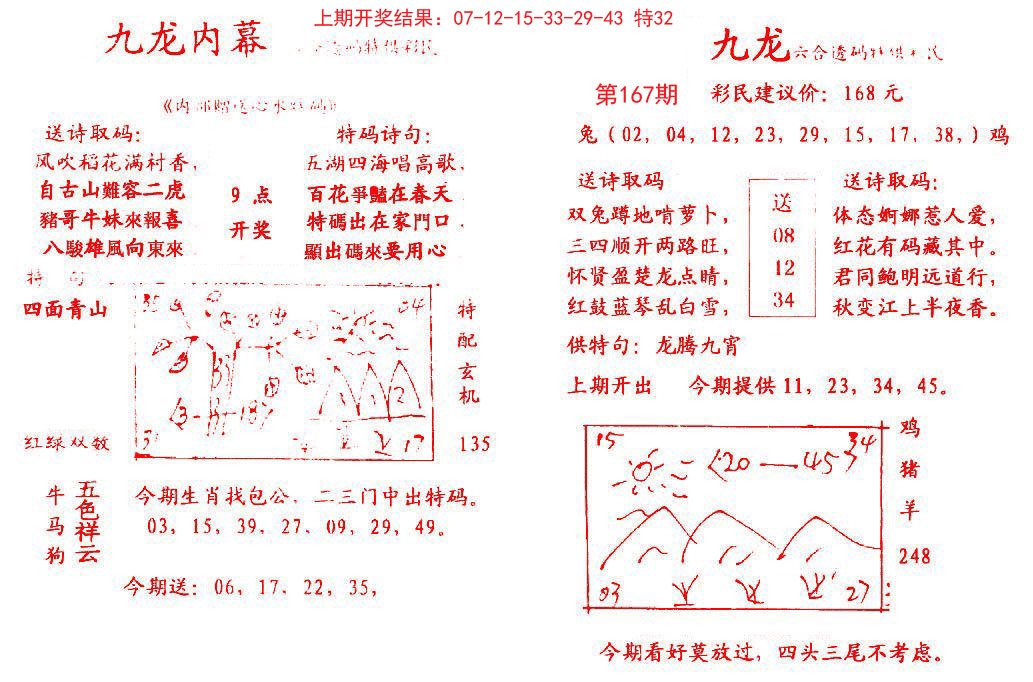 上期开奖结果：07-12-15-33-29-43 特32
九龙内幕
送诗取码：
风吹稻花满村香，
自古山難容二虎
豬哥牛妹來報喜
八駿雄風向東來
9 点
开奖
特码诗句：
五湖四海唱高歌，
百花爭豔在春天
特碼出在家門口
顯出碼來要用心
特 句
四面青山
红绿双数
35
04
1 2
17
特配玄机
135
牛马狗
五色祥云
今期生肖找包公，二三门中出特码。
03，15，39，27，09，29，49。
今期送：06，17，22，35，
九龙六合透码
第167期 彩民建议价：168元
兔（02，04，12，23，29，15，17，38，）鸡
送诗取码
双兔蹲地啃萝卜，
三四顺开两路旺，
怀贤盈楚龙点睛，
红鼓蓝琴乱白雪，
送
08
12
34
送诗取码：
体态婀娜惹人爱，
红花有码藏其中。
君同鲍明远道行，
秋变江上半夜香。
供特句：龙腾九宵
上期开出 今期提供11，23，34，45。
15
34
20—45
03
27
鸡
猪
羊
248
今期看好莫放过，四头三尾不考虑。